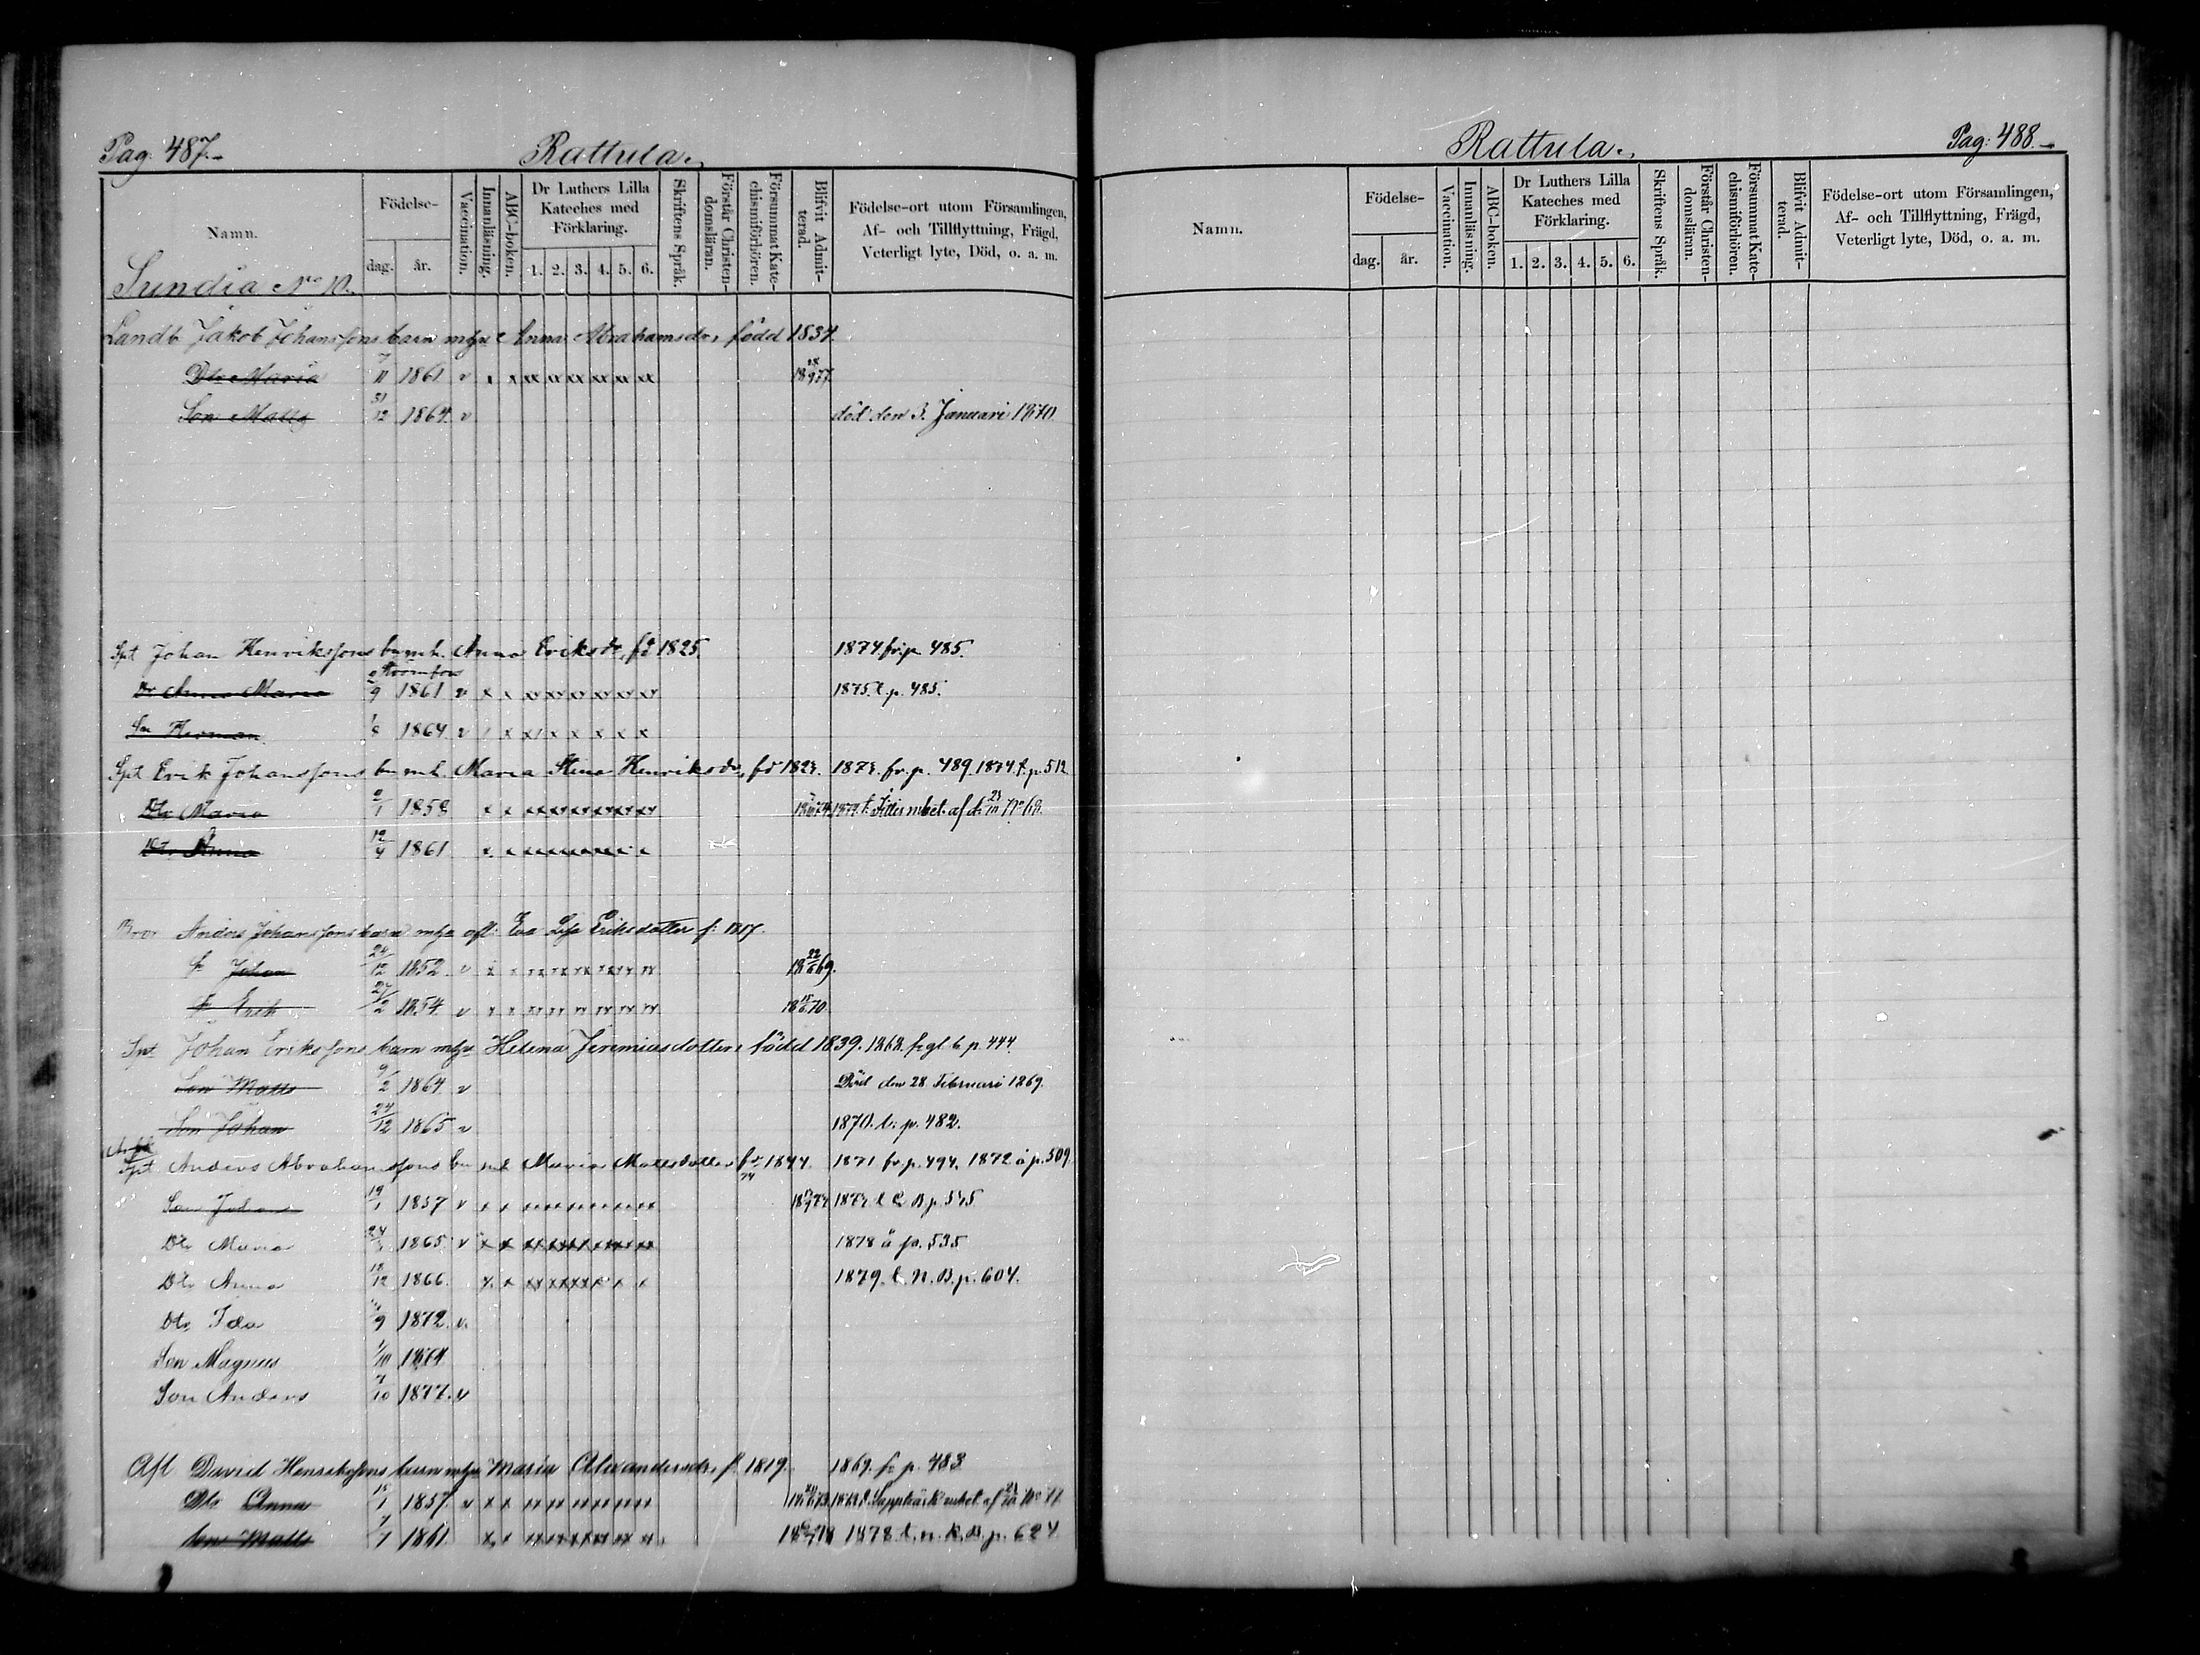 Pag: 487.
Rattula.
Namn.
Födelse-
dag.
år.
Vaccination.
Innanläsning.
ABC-boken.
Dr Luthers Lilla Kateches med Förklaring.
1. 2. 3. 4. 5. 6.
Skriftens Språk.
Förstår Christendomsläran.
Försummat Katechismiförhören.
Blifvit Admitterad.
Födelse-ort utom Församlingen, Af- och Tillflyttning, Frägd, Veterligt lyte, Död, o. a. m.
Sundia No 10.
Landb. Jakob Johanssons barn m hu Anna Abrahamsdr, född 1834.
Dtr Maria 7/11 1861 v x x xx xx xx xx xx xx
Son Matts 31/12 1864 v död den 3. Januari 1870.
Spt Johan Henrikssons bn m h. Anna Eriksdr, fd 1825. 1874 fr. p. 485.
Dr Anna Maria 2/9 1861 v x x xx xx xx xx xx xx 1875. t. p. 485.
Son Herman 1/8 1864 v
Spt Erik Johanssons bn m h. Maria Stina Henriksdr, fd 1823. 1873. fr. p. 489. 1874 t. p. 512
Dtr Maria 2/1 1858
Dtr Anna 12/4 1861
Anders Johanssons barn m hu Eva Lisa Eriksdotter f. 1817.
Sn Johan 24/12 1852 v 18 22/6 69.
Sn Erik 27/2 1854 v
Johan Erikssons barn m hu Helena Jeremiasdotter, född 1839. 1868. fr gl b p. 444.
Son Matts 9/2 1864 v Död den 28 Februari 1869.
Son Johan 24/12 1865 v 1870. t. p. 482.
Spt Anders Abrahamssons bn m h Maria Mattsdotter fd 1844. 1871 fr. p. 494. 1872 å p. 509.
Son Johan 19/1 1857 v
Dtr Maria 1865 v 1878 å p. 535
Dtr Anna 18/12 1866. 1879. t. N. B. p. 604.
Dtr Ida 1872. v.
Son Magnus 1/10
Son Anders 7/10 1877. v
Aft David Henrikssons barn m hu Maria Alexandersdr, f. 1819. 1869. fr p. 483
Dtr Anna 15/1 1857. v x x
Son Matts 1861. 1878. t. n. K. B. p. 624
Rattula.
Pag: 488.
Namn.
Födelse-
dag.
år.
Vaccination.
Innanläsning.
ABC-boken.
Dr Luthers Lilla Kateches med Förklaring.
1. 2. 3. 4. 5. 6.
Skriftens Språk.
Förstår Christendomsläran.
Försummat Katechismiförhören.
Blifvit Admitterad.
Födelse-ort utom Församlingen, Af- och Tillflyttning, Frägd, Veterligt lyte, Död, o. a. m.